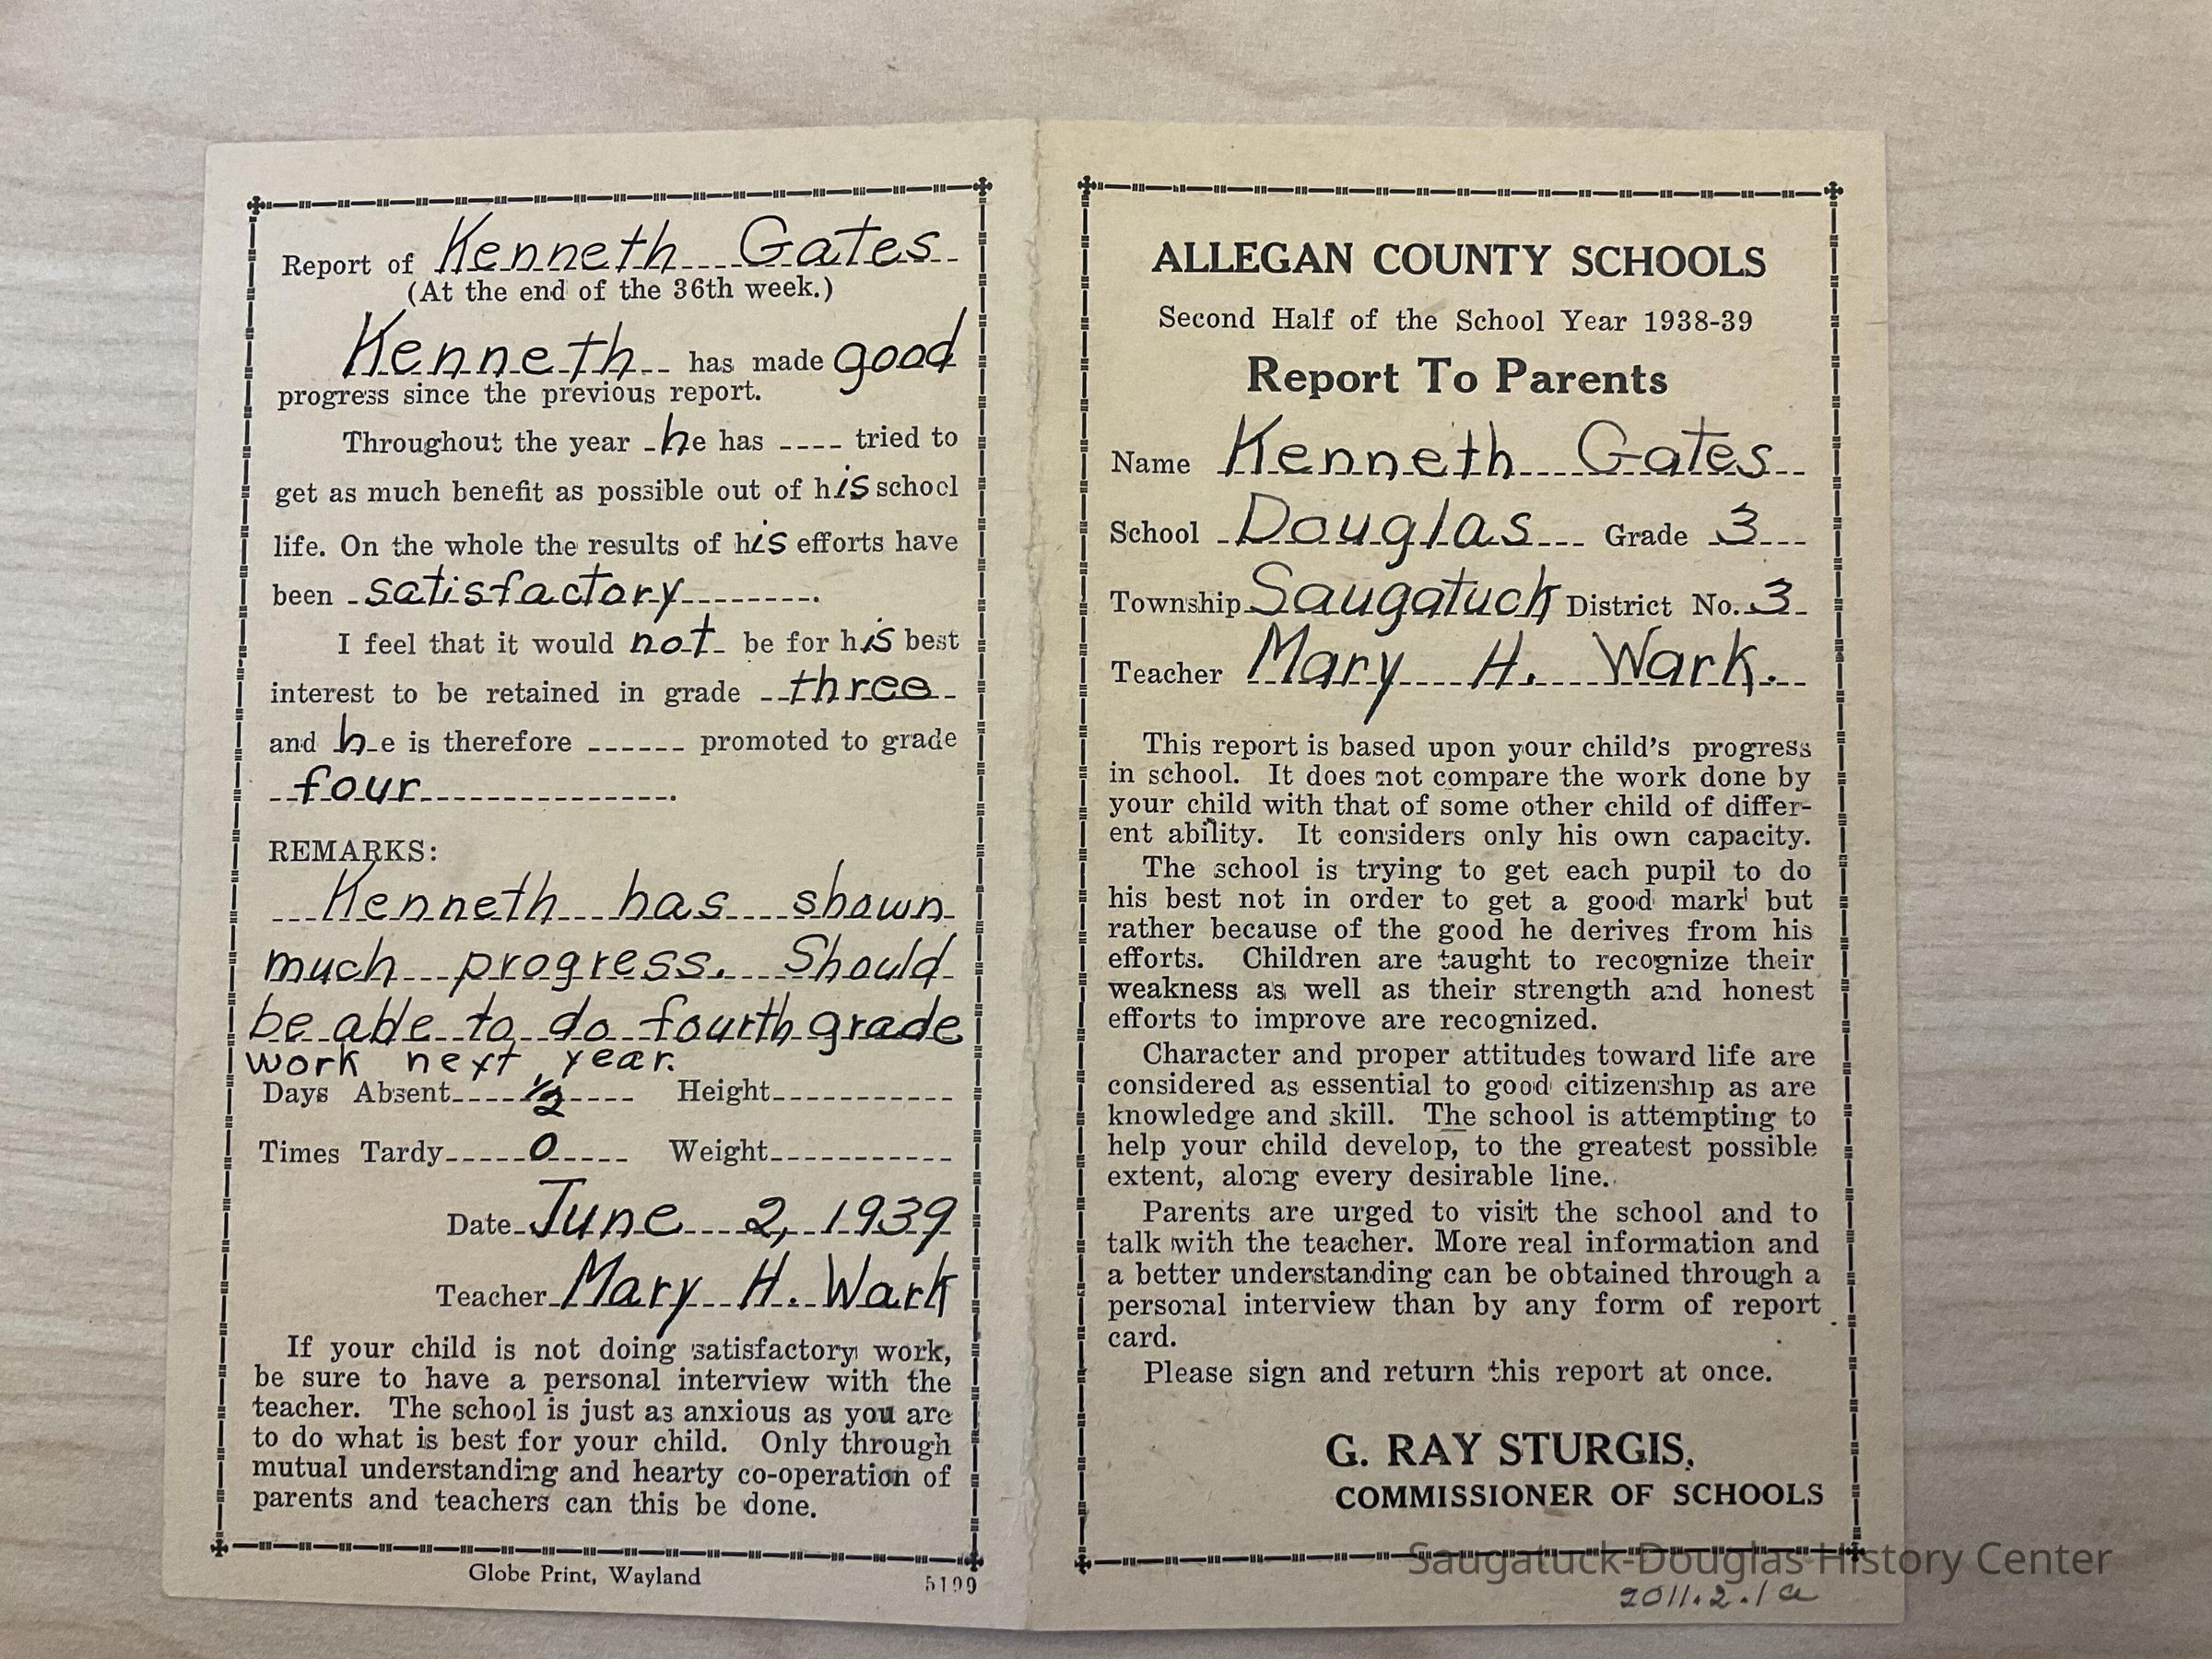 Report of Kenneth Gates
(At the end of the 36th week.)
Kenneth has made good
progress since the previous report.
Throughout the year he has ---- tried to
get as much benefit as possible out of his school
life. On the whole the results of his efforts have
been satisfactory.
I feel that it would not be for his best
interest to be retained in grade three
and he is therefore ------ promoted to grade
four.
REMARKS:
Kenneth has shown
much progress. Should
be able to do fourth grade
work next year.
Days Absent 1/2 Height
Times Tardy 0 Weight
Date June 2, 1939
Teacher Mary H. Wark
If your child is not doing satisfactory work,
be sure to have a personal interview with the
teacher. The school is just as anxious as you are
to do what is best for your child. Only through
mutual understanding and hearty co-operation of
parents and teachers can this be done.
Globe Print, Wayland 5199
ALLEGAN COUNTY SCHOOLS
Second Half of the School Year 1938-39
Report To Parents
Name Kenneth Gates
School Douglas Grade 3
Township Saugatuck District No. 3
Teacher Mary H. Wark.
This report is based upon your child's progress
in school. It does not compare the work done by
your child with that of some other child of differ-
ent ability. It considers only his own capacity.
The school is trying to get each pupil to do
his best not in order to get a good mark but
rather because of the good he derives from his
efforts. Children are taught to recognize their
weakness as well as their strength and honest
efforts to improve are recognized.
Character and proper attitudes toward life are
considered as essential to good citizenship as are
knowledge and skill. The school is attempting to
help your child develop, to the greatest possible
extent, along every desirable line.
Parents are urged to visit the school and to
talk with the teacher. More real information and
a better understanding can be obtained through a
personal interview than by any form of report
card.
Please sign and return this report at once.
G. RAY STURGIS,
COMMISSIONER OF SCHOOLS
Saugatuck-Douglas History Center
2011.2.1a